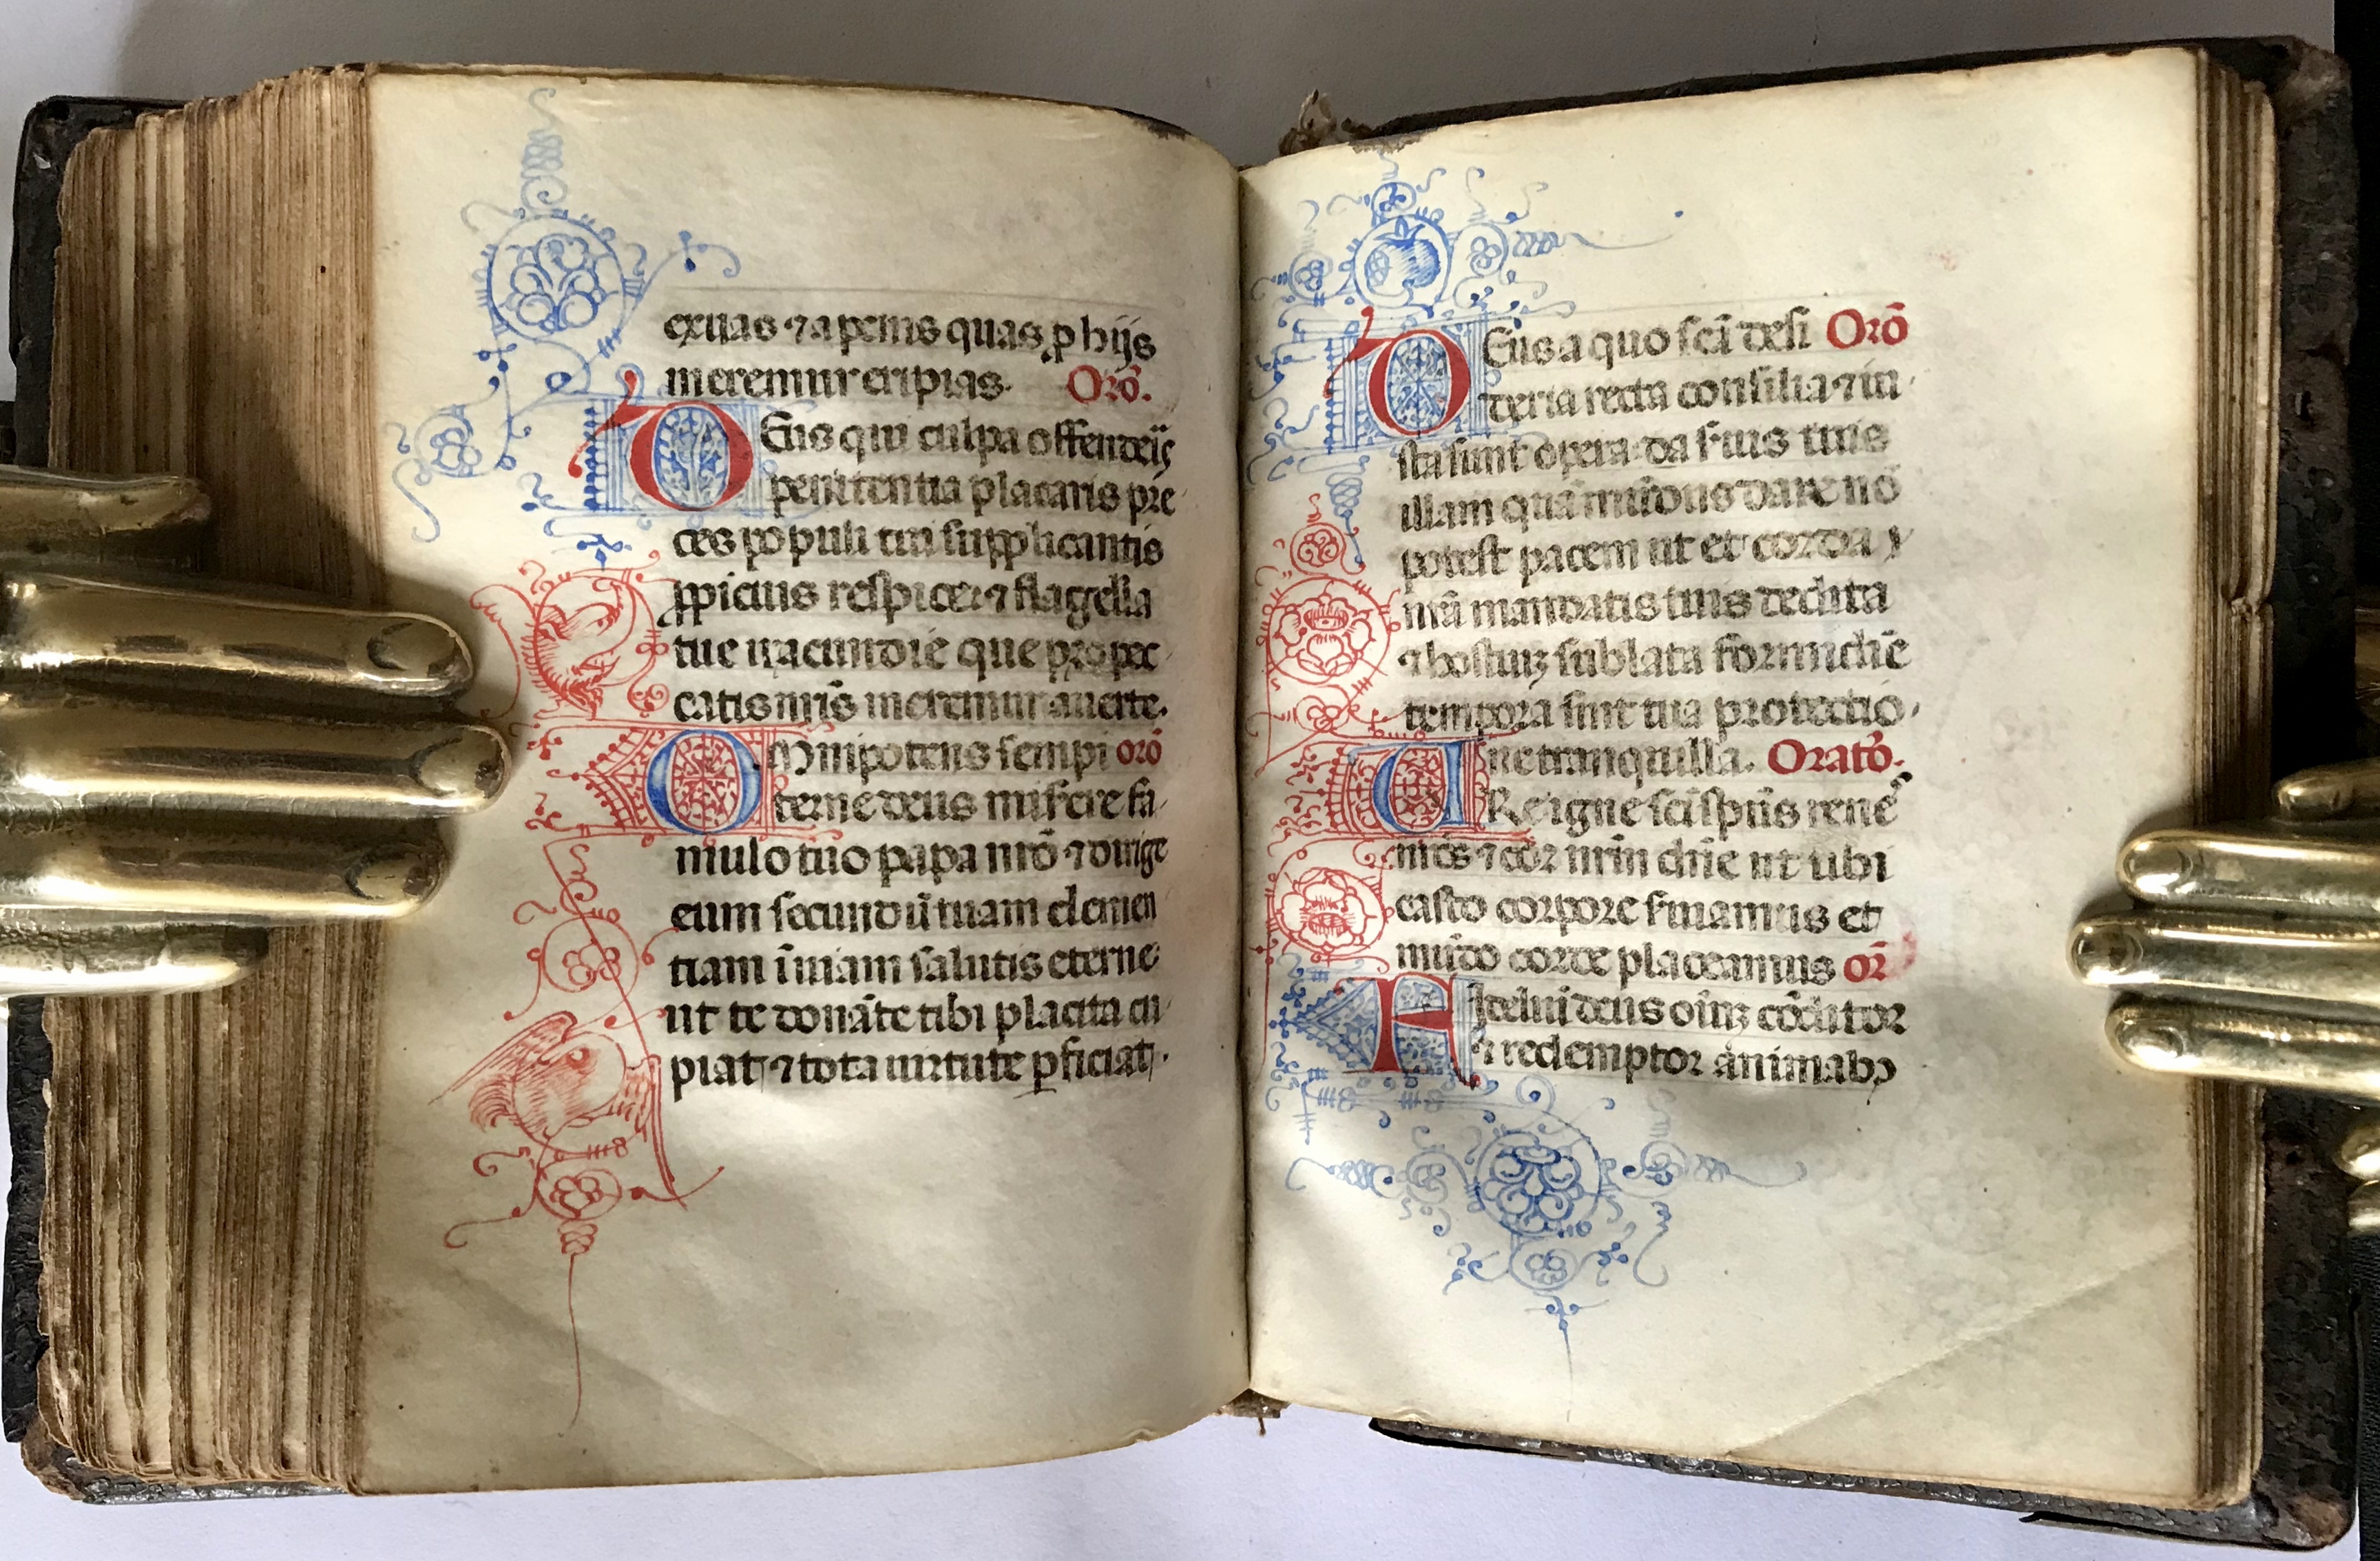 exuas ⁊ a penis quas ꝑ hijs
meremur eripias. Orō.
DEus qui culpa offenderis
penitentia placaris pre
ces populi tui supplicantis
ꝓpicius respice: ⁊ flagella
tue iracundie que pro pec
catis nr̄is meremur auerte.
OMnipotens sempi orō
terne deus miserere fa
mulo tuo papa nr̄o ⁊ dirige
eum secundū tuam clemen
tiam ī uiam salutis eterne
ut te donāte tibi placita cu
piat ⁊ tota uirtute ꝑficiat.
DEus a quo sc̄a desi Orō
deria recta consilia ⁊ iu
sta sunt opera da s̄uis tuis
illam quā mūdus dare nō
potest pacem ut et corda
nr̄a mandatis tuis dedita
⁊ hostiuꝫ sublata formidīe
tempora sint tua protectio
ne tranquilla. Oratō.
URe igne sc̄i sp̄us rene
nr̄os ⁊ cor nr̄m dn̄e ut tibi
casto corpore s̄uiamus et
mūdo corde placeamus or̄
FIdeliū deus oīuꝫ cōditor
⁊ redemptor animabꝫ